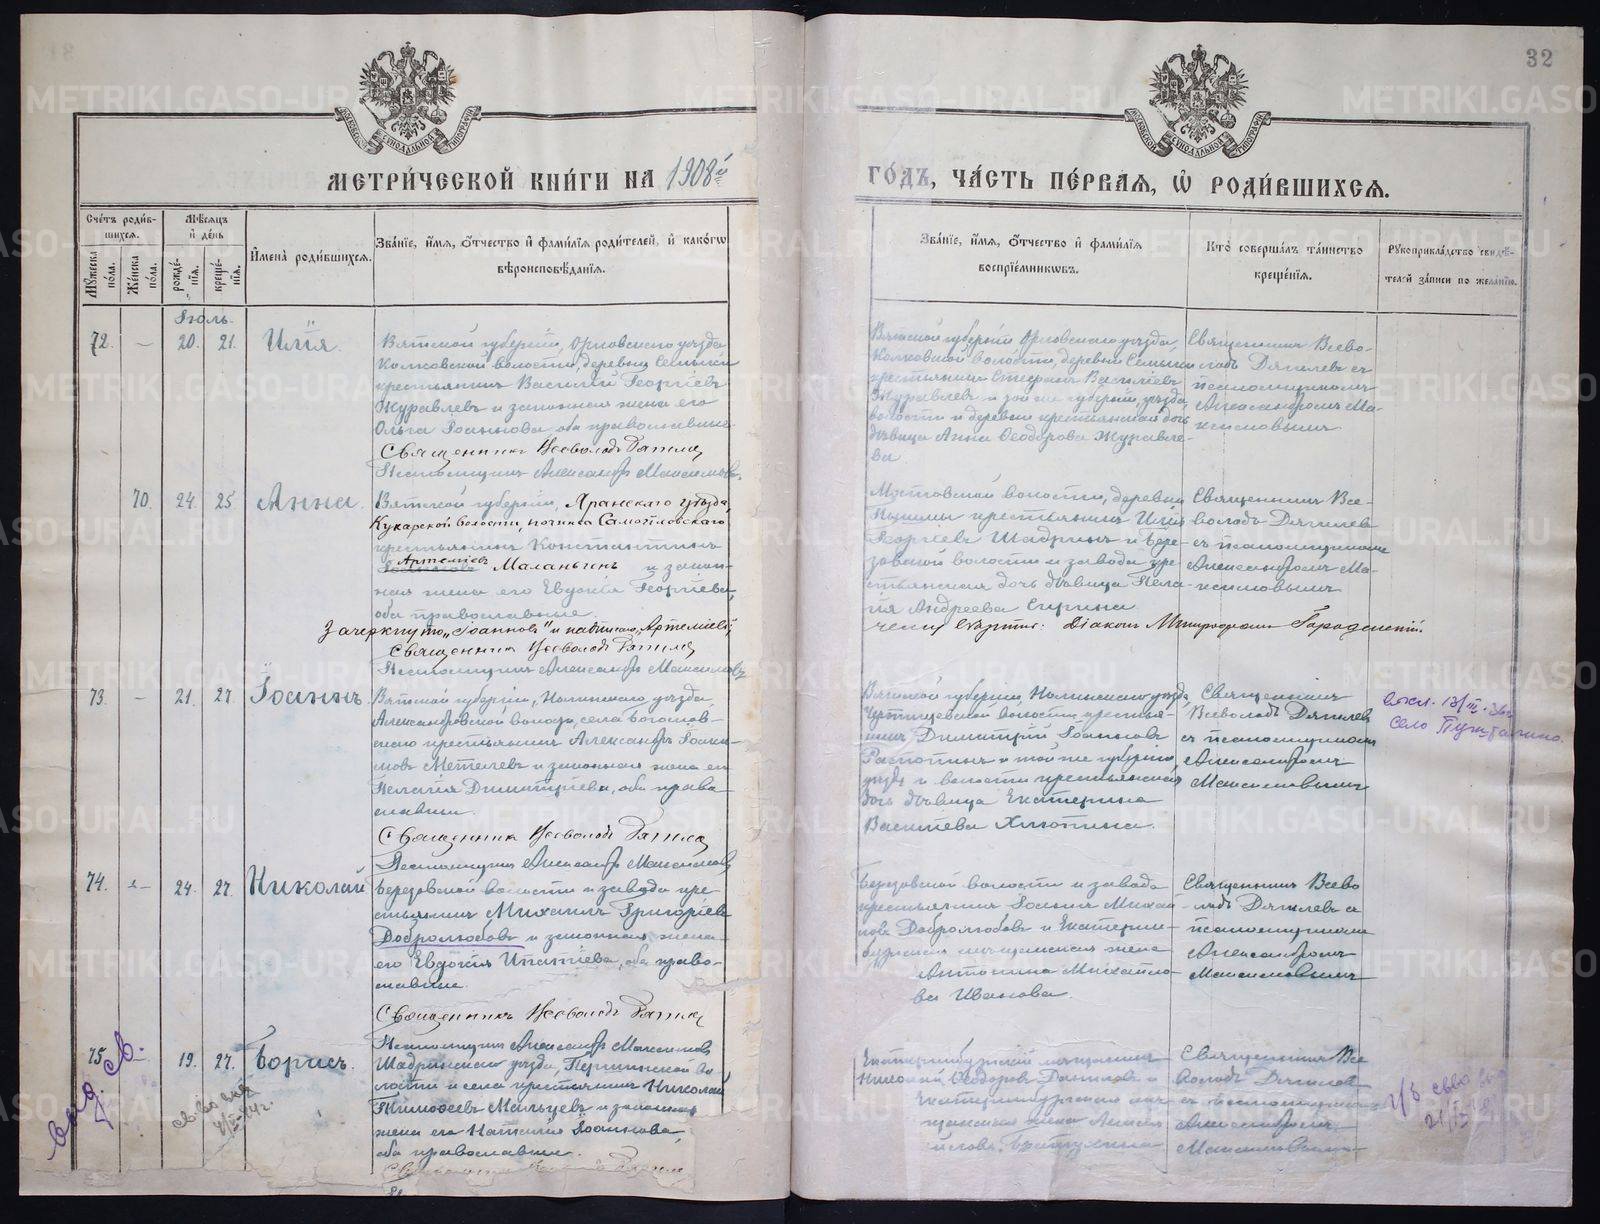 32
МОСКОВСКОЙ СУНОДАЛЬНОЙ ТИПОГРАФІИ
МОСКОВСКОЙ СУНОДАЛЬНОЙ ТИПОГРАФІИ
МЕТРИ́ЧЕСКОЙ КНИ́ГИ НА 1908й
ГО́ДЪ, ЧА́СТЬ ПЕ́РВАЯ, Ѡ РОДИ́ВШИХСЯ.
Сче́тъ роди́в-
шихся.
Му́жеска по́ла.
Же́нска по́ла.
Мѣ́сяцъ
и де́нь
рожде́-
нія.
креще́-
нія.
Имена́ роди́вшихся.
Зва́ніе, и́мя, о́тчество и фами́лія роди́телей, и како́гѡ
вѣроисповѣ́данія.
Зва́ніе, и́мя, о́тчество и фами́лія
воспріе́мникѡвъ.
Кто́ соверша́лъ та́инство
креще́нія.
Рукоприкла́дство свидѣ́-
телей за́писи по жела́нію.
Іюль.
72. — 20. 21. Илія.
Вятской губерніи, Орловскаго уѣзда,
Колковской волости, деревни
крестьянинъ Василій Георгіевъ
Журавлевъ и законная жена его
Ольга Іоаннова, оба православные
Священникъ Всеволодъ Дягилевъ
Псаломщикъ Александръ Максимовъ
Вятской губерніи Орловскаго уѣзда,
Колковской волости, деревни
крестьянинъ Стефанъ Васильевъ
Журавлевъ и той же губерніи, уѣзда,
волости и деревни крестьянская дочь
дѣвица Анна Ѳеодорова Журавле-
ва
Священникъ Всево-
лодъ Дягилевъ съ
псаломщикомъ
Александромъ Ма-
ксимовымъ
70. 24. 25 Анна.
Вятской губерніи, Яранскаго уѣзда,
Кукарской волости, починка Самойловскаго
крестьянинъ Константинъ
Артеміевъ Маланьинъ и закон-
ная жена его Евдокія Георгіева,
оба православные
Зачеркнуто „Іоанновъ“ и надписано „Артеміевъ“
Священникъ Всеволодъ Дягилевъ
Псаломщикъ Александръ Максимовъ
волости, деревни
крестьянинъ Илія
Георгіевъ Шадринъ и Бере-
зовской волости и завода кре-
стьянская дочь дѣвица Пела-
гія Андреева
Діаконъ
Священникъ Все-
володъ Дягилевъ
съ псаломщикомъ
Александромъ Ма-
ксимовымъ
73. — 21. 27. Іоаннъ.
Вятской губерніи, Нолинскаго уѣзда
Александровской волости, села Богослов-
скаго крестьянинъ Александръ Іоан-
новъ Метелевъ и законная жена его
Пелагія Димитріева, оба право-
славные.
Священникъ Всеволодъ Дягилевъ
Псаломщикъ Александръ Максимовъ
Вятской губерніи, Нолинскаго уѣзда,
волости крестья-
нинъ Димитрій Іоанновъ
и той же губерніи,
уѣзда и волости крестьянская
дочь дѣвица Екатерина
Васильева
Священникъ
Всеволодъ Дягилевъ
съ псаломщикомъ
Александромъ
Максимовымъ
село
74. — 24. 27. Николай
Березовской волости и завода кре-
стьянинъ Михаилъ Григоріевъ
Добролюбовъ и законная жена
его Евдокія Ипатіева, оба право-
славные.
Священникъ Всеволодъ Дягилевъ
Псаломщикъ Александръ Максимовъ
Березовской волости и завода
крестьянинъ Іоаннъ Михаи-
ловъ Добролюбовъ и Екатерин-
бургская мѣщанская жена
Антонина Михайло-
ва Иванова.
Священникъ Всево-
лодъ Дягилевъ съ
псаломщикомъ
Александромъ
Максимовымъ
75 19. 27. Борисъ.
Шадринскаго уѣзда, Першинской во-
лости и села крестьянинъ Николай
Тимоѳеевъ Мальцевъ и законная
жена его Наталія Іоаннова,
оба православные.
Екатеринбургскій мѣщанинъ
Николай Ѳеодоровъ Даниловъ и
Екатеринбургская мѣ-
щанская жена
Священникъ Все-
володъ Дягилевъ
съ псаломщикомъ
Александромъ
Максимовымъ
METRIKI.GASO-URAL.RU